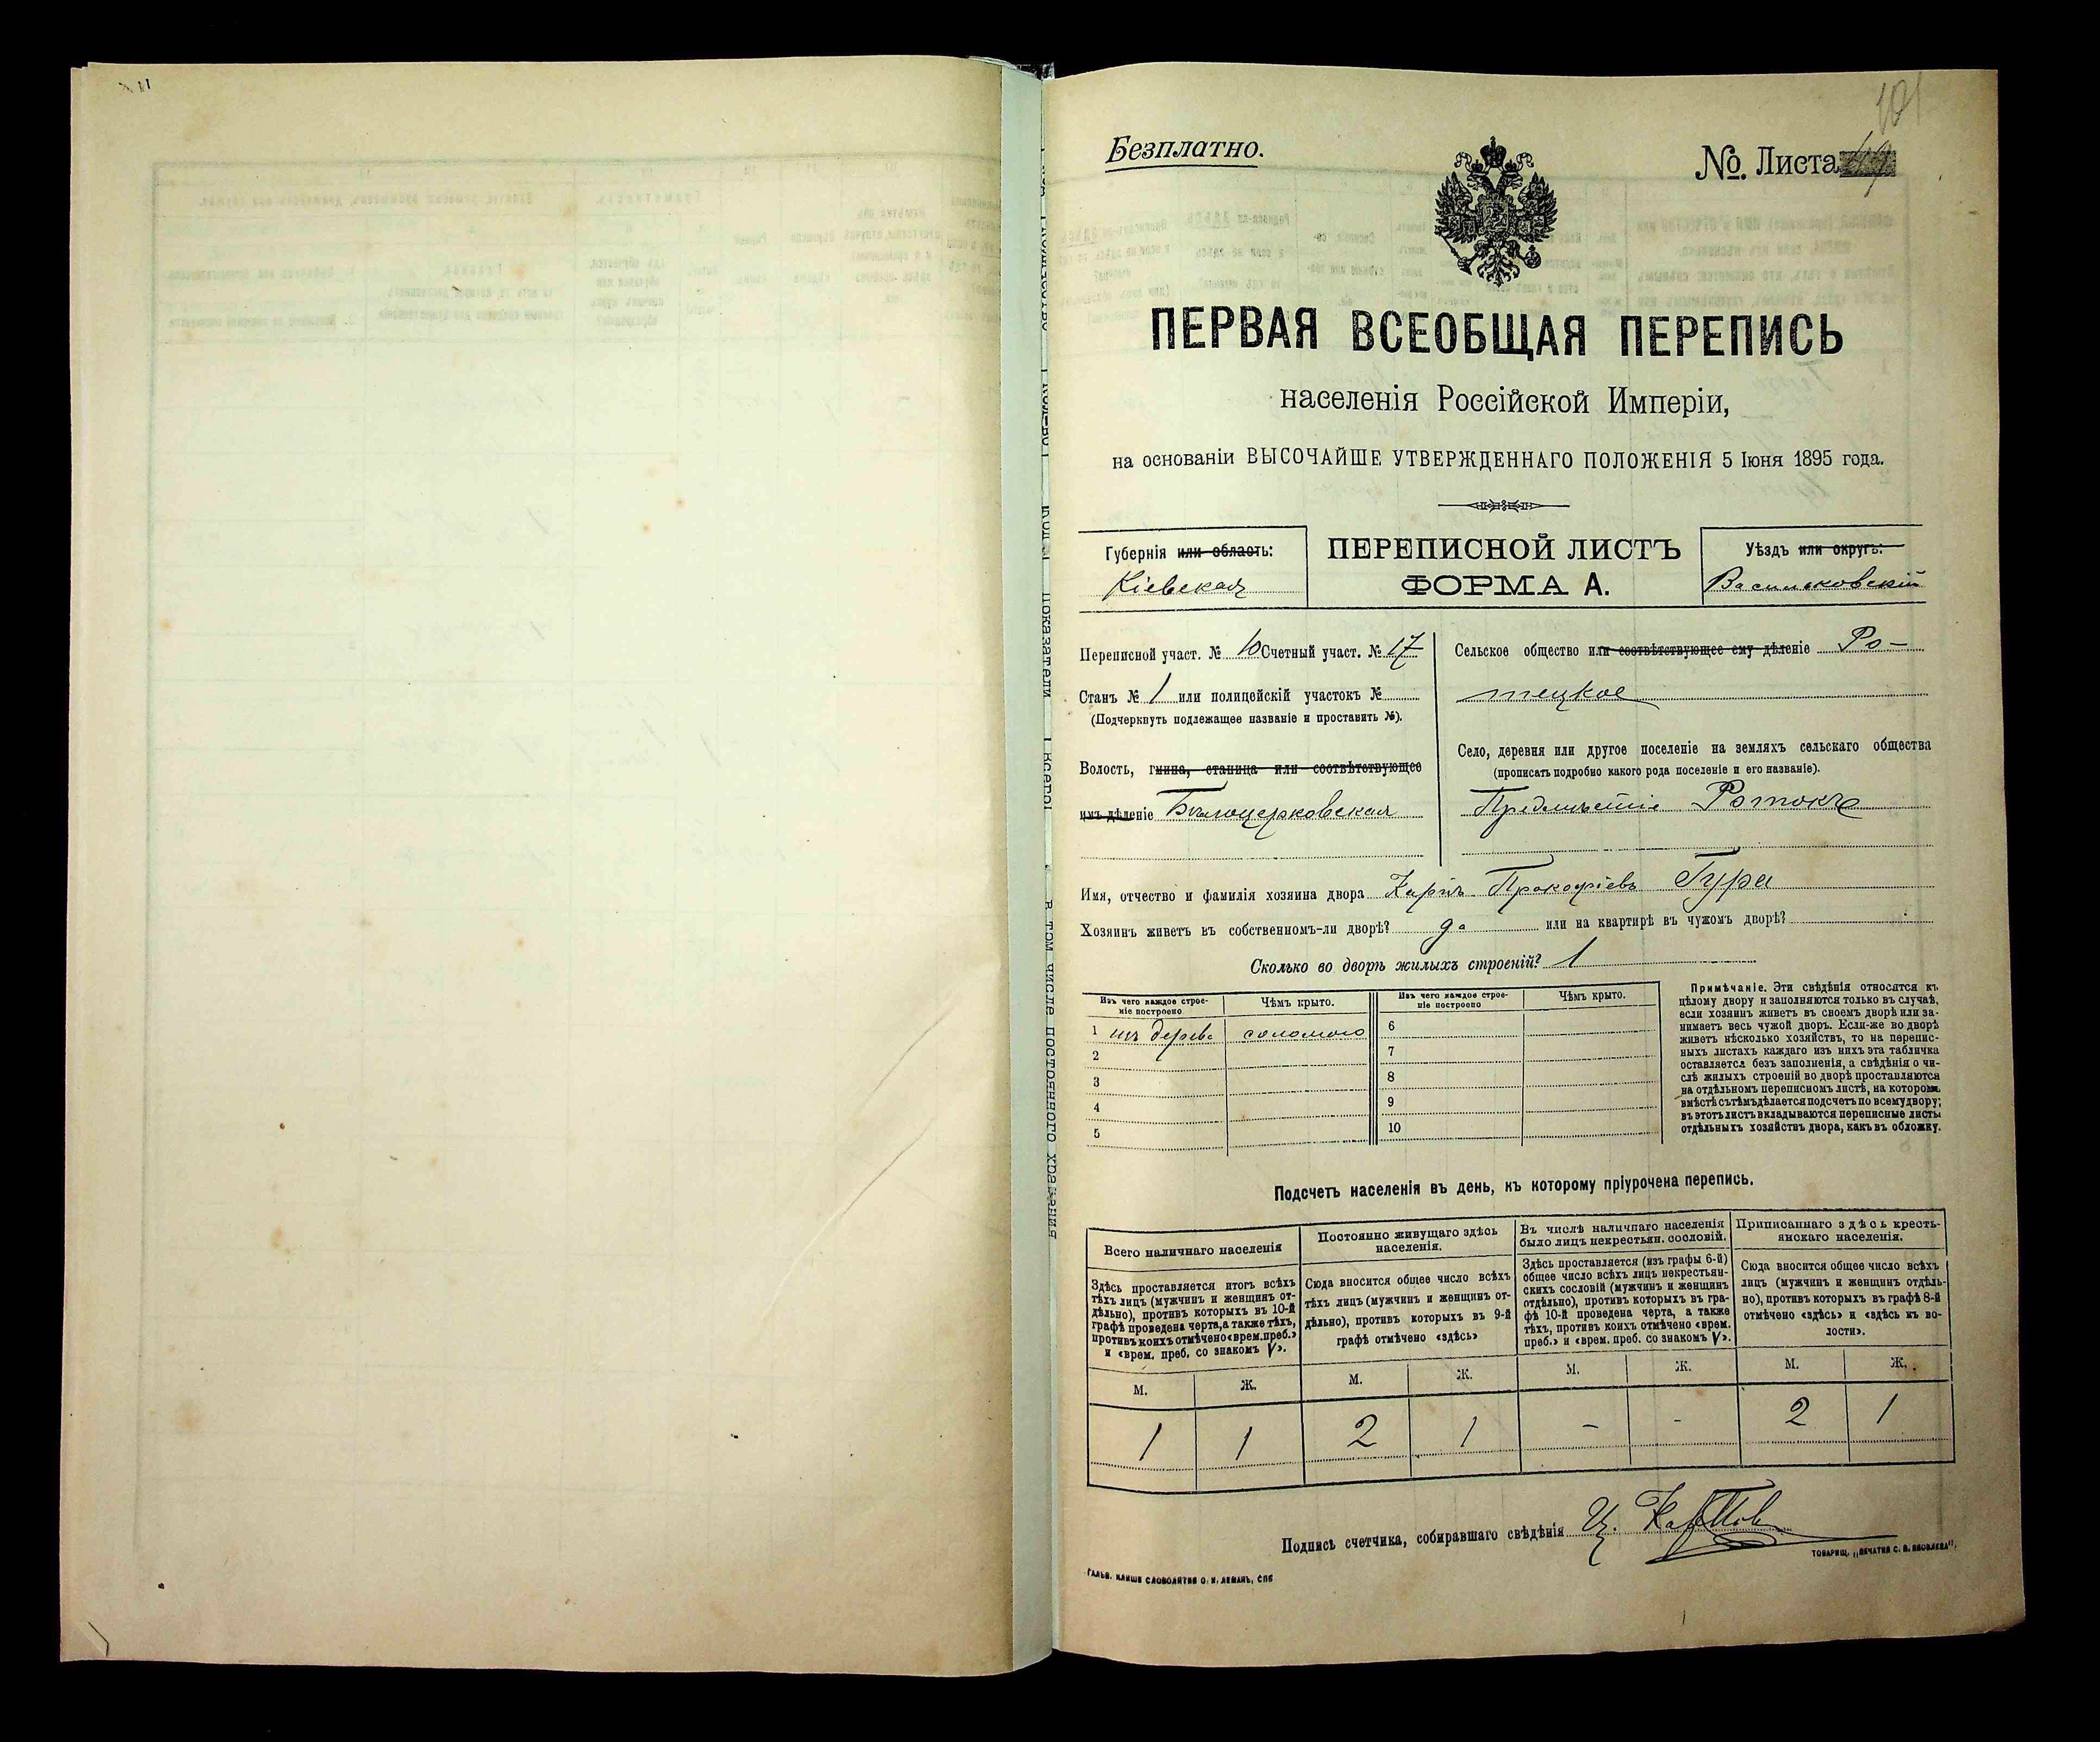 101
Безплатно.
№. Листа 49
ПЕРВАЯ ВСЕОБЩАЯ ПЕРЕПИСЬ
населенія Россійской Имперіи,
на основаніи ВЫСОЧАЙШЕ УТВЕРЖДЕННАГО ПОЛОЖЕНІЯ 5 Іюня 1895 года.
Губернія или область:
Кіевская
ПЕРЕПИСНОЙ ЛИСТЪ
ФОРМА А.
Уѣздъ или округъ:
Васильковскій
Переписной участ. № 10 Счетный участ. № 17
Станъ № 1 или полицейскій участокъ №
(Подчеркнуть подлежащее названіе и проставить №).
Волость, гмина, станица или соотвѣтствующее
имъ дѣленіе Бѣлоцерковская
Сельское общество или соотвѣтствующее ему дѣленіе Ро-
тецкое
Село, деревня или другое поселеніе на земляхъ сельскаго общества
(прописать подробно какого рода поселеніе и его названіе).
Предмѣстіе Ротокъ
Имя, отчество и фамилія хозяина двора Прокофіевъ Гура
Хозяинъ живетъ въ собственномъ-ли дворѣ? да или на квартирѣ въ чужомъ дворѣ?
Сколько во дворѣ жилыхъ строеній? 1
Изъ чего каждое строе-
ніе построено
Чѣмъ крыто.
Изъ чего каждое строе-
ніе построено
Чѣмъ крыто.
1 изъ дерева соломою
2
3
4
5
6
7
8
9
10
Примѣчаніе. Эти свѣдѣнія относятся къ
цѣлому двору и заполняются только въ случаѣ,
если хозяинъ живетъ въ своемъ дворѣ или за-
нимаетъ весь чужой дворъ. Если-же во дворѣ
живетъ нѣсколько хозяйствъ, то на перепис-
ныхъ листахъ каждаго изъ нихъ эта табличка
оставляется безъ заполненія, а свѣдѣнія о чи-
слѣ жилыхъ строеній во дворѣ проставляются
на отдѣльномъ переписномъ листѣ, на которомъ
вмѣстѣ съ тѣмъ дѣлается подсчетъ по всему двору;
въ этотъ листъ вкладываются переписные листы
отдѣльныхъ хозяйствъ двора, какъ въ обложку.
Подсчетъ населенія въ день, къ которому пріурочена перепись.
Всего наличнаго населенія
Здѣсь проставляется итогъ всѣхъ
тѣхъ лицъ (мужчинъ и женщинъ от-
дѣльно), противъ которыхъ въ 10-й
графѣ проведена черта, а также тѣхъ,
противъ коихъ отмѣчено «врем. преб.»
и «врем. преб. со знакомъ V».
Постоянно живущаго здѣсь
населенія.
Сюда вносится общее число всѣхъ
тѣхъ лицъ (мужчинъ и женщинъ от-
дѣльно), противъ которыхъ въ 9-й
графѣ отмѣчено «здѣсь»
Въ числѣ наличнаго населенія
было лицъ некрестьян. сословій.
Здѣсь проставляется (изъ графы 6-й)
общее число всѣхъ лицъ некрестьян-
скихъ сословій (мужчинъ и женщинъ
отдѣльно), противъ которыхъ въ гра-
фѣ 10-й проведена черта, а также
тѣхъ, противъ коихъ отмѣчено «врем.
преб.» и «врем. преб. со знакомъ V».
Приписаннаго здѣсь кресть-
янскаго населенія.
Сюда вносится общее число всѣхъ
лицъ (мужчинъ и женщинъ отдѣль-
но), противъ которыхъ въ графѣ 8-й
отмѣчено «здѣсь» и «здѣсь къ во-
лости».
М. Ж. М. Ж. М. Ж. М. Ж.
1 1 2 1 - - 2 1
Подпись счетчика, собиравшаго свѣдѣнія
ГАЛЬВ. КЛИШЕ СЛОВОЛИТНЯ О. И. ЛЕМАНЪ, СПБ
ТОВАРИЩ. „ПЕЧАТНЯ С. П. ЯКОВЛЕВА".